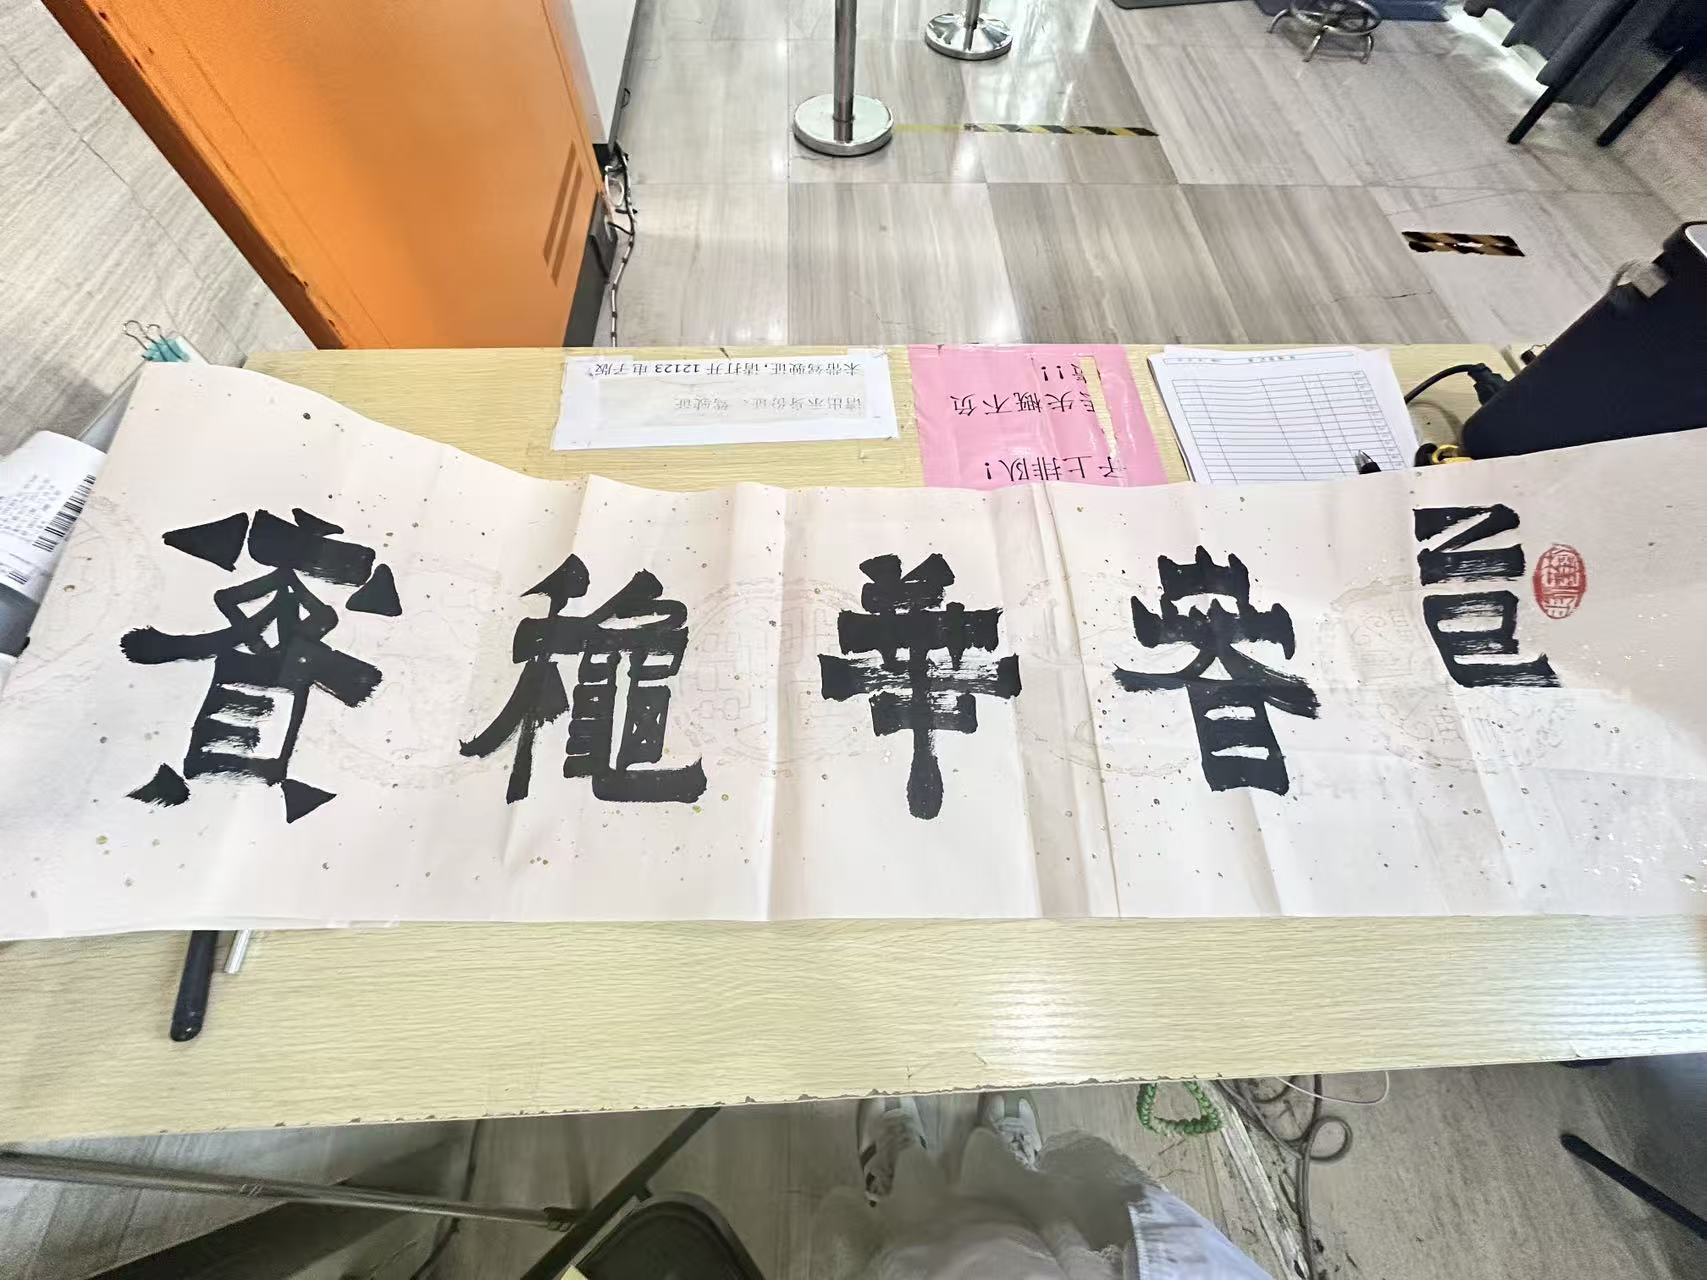 乙巳
春華穐實
请出示身份证、驾驶证
未带驾驶证,请打开 12123 电子版
子上排队!
失概不负
!!